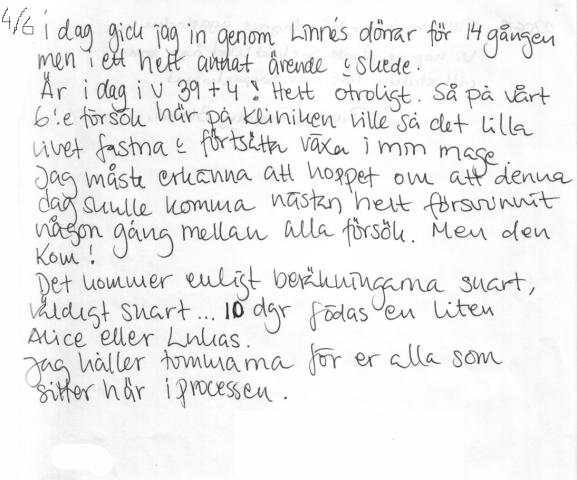 4/6
i dag gick jag in genom Linnés dörrar för 14 gången
men i ett helt annat ärende i Skede.
Är i dag i v 39+4! Helt otroligt. Så på vårt
6:e försök här på kliniken ville så det lilla
livet fastna & förtsätta växa i min mage.
Jag måste erkänna att hoppet om att denna
dag skulle komma nästan helt försvunnit
någon gång mellan alla försök. Men den
kom!
Det kommer enligt beräkningarna snart,
väldigt snart... 10 dgr födas en liten
Alice eller Lukas.
Jag håller tummarna för er alla som
sitter här i processen.